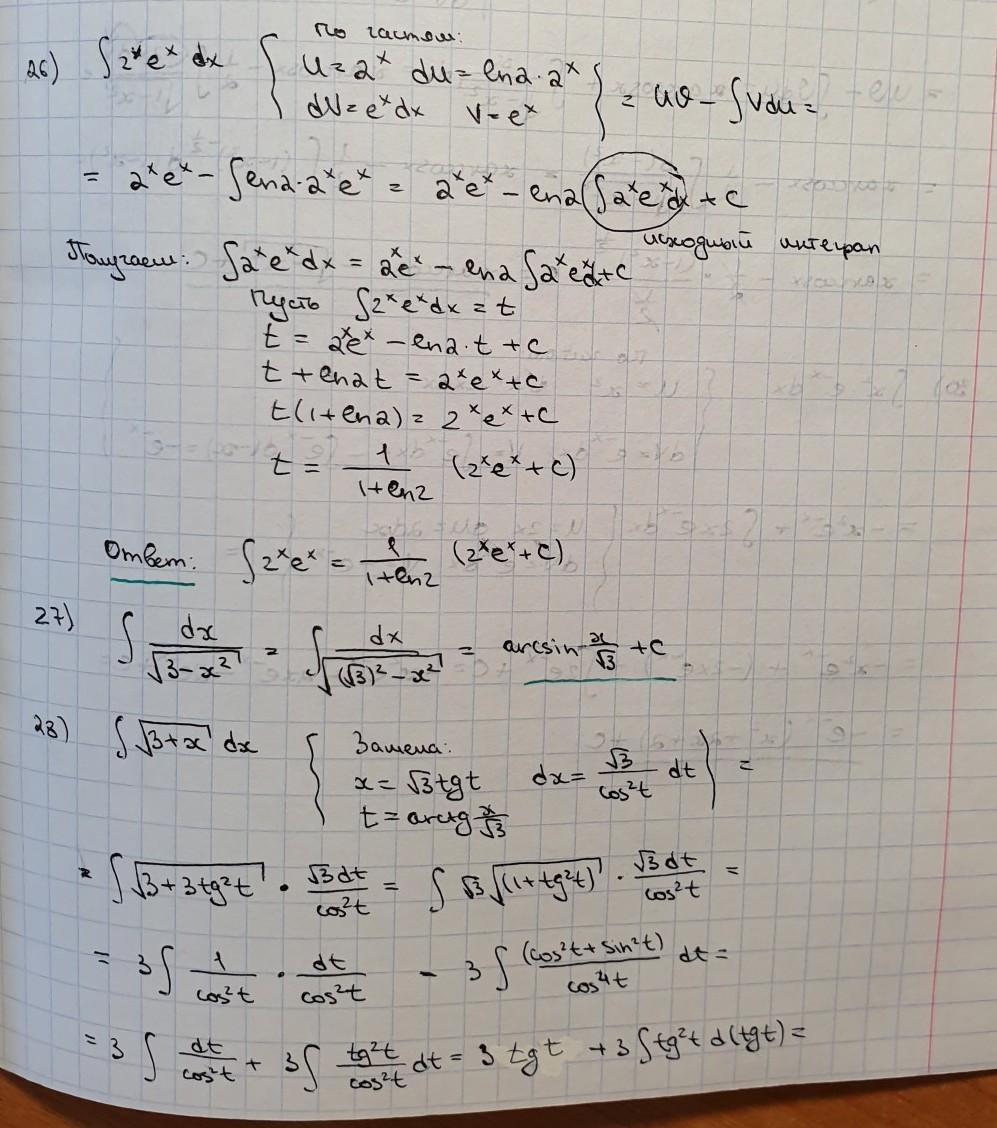 По частям:
26) ∫2ˣeˣ dx { U = 2ˣ du = ln2·2ˣ
dV = eˣdx V = eˣ } = UV − ∫Vdu =
= 2ˣeˣ − ∫ln2·2ˣeˣ = 2ˣeˣ − ln2 ∫2ˣeˣdx + C
исходный интеграл
Получаем: ∫2ˣeˣdx = 2ˣeˣ − ln2 ∫2ˣeˣdx + C
Пусть ∫2ˣeˣdx = t
t = 2ˣeˣ − ln2·t + C
t + ln2t = 2ˣeˣ + C
t(1 + ln2) = 2ˣeˣ + C
t = 1/(1+ln2) (2ˣeˣ + C)
Ответ: ∫2ˣeˣ = 1/(1+ln2) (2ˣeˣ + C)
27) ∫ dx/√(3−x²) = ∫ dx/√((√3)²−x²) = arcsin x/√3 + C
28) ∫√(3+x) dx { Замена:
x = √3 tg t dx = √3/cos²t dt } =
t = arctg x/√3
= ∫√(3+3tg²t) · √3dt/cos²t = ∫√3√(1+tg²t) · √3dt/cos²t =
= 3∫ 1/cos²t · dt/cos²t − 3∫ (cos²t+sin²t)/cos⁴t dt =
= 3∫ dt/cos²t + 3∫ tg²t/cos²t dt = 3 tg t + 3∫tg²t d(tgt) =